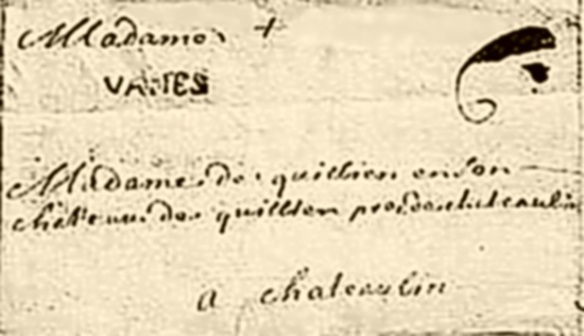 Madame
VANES
Madame de quillien en son
château de quillien pres de chateaulin
a chateaulin